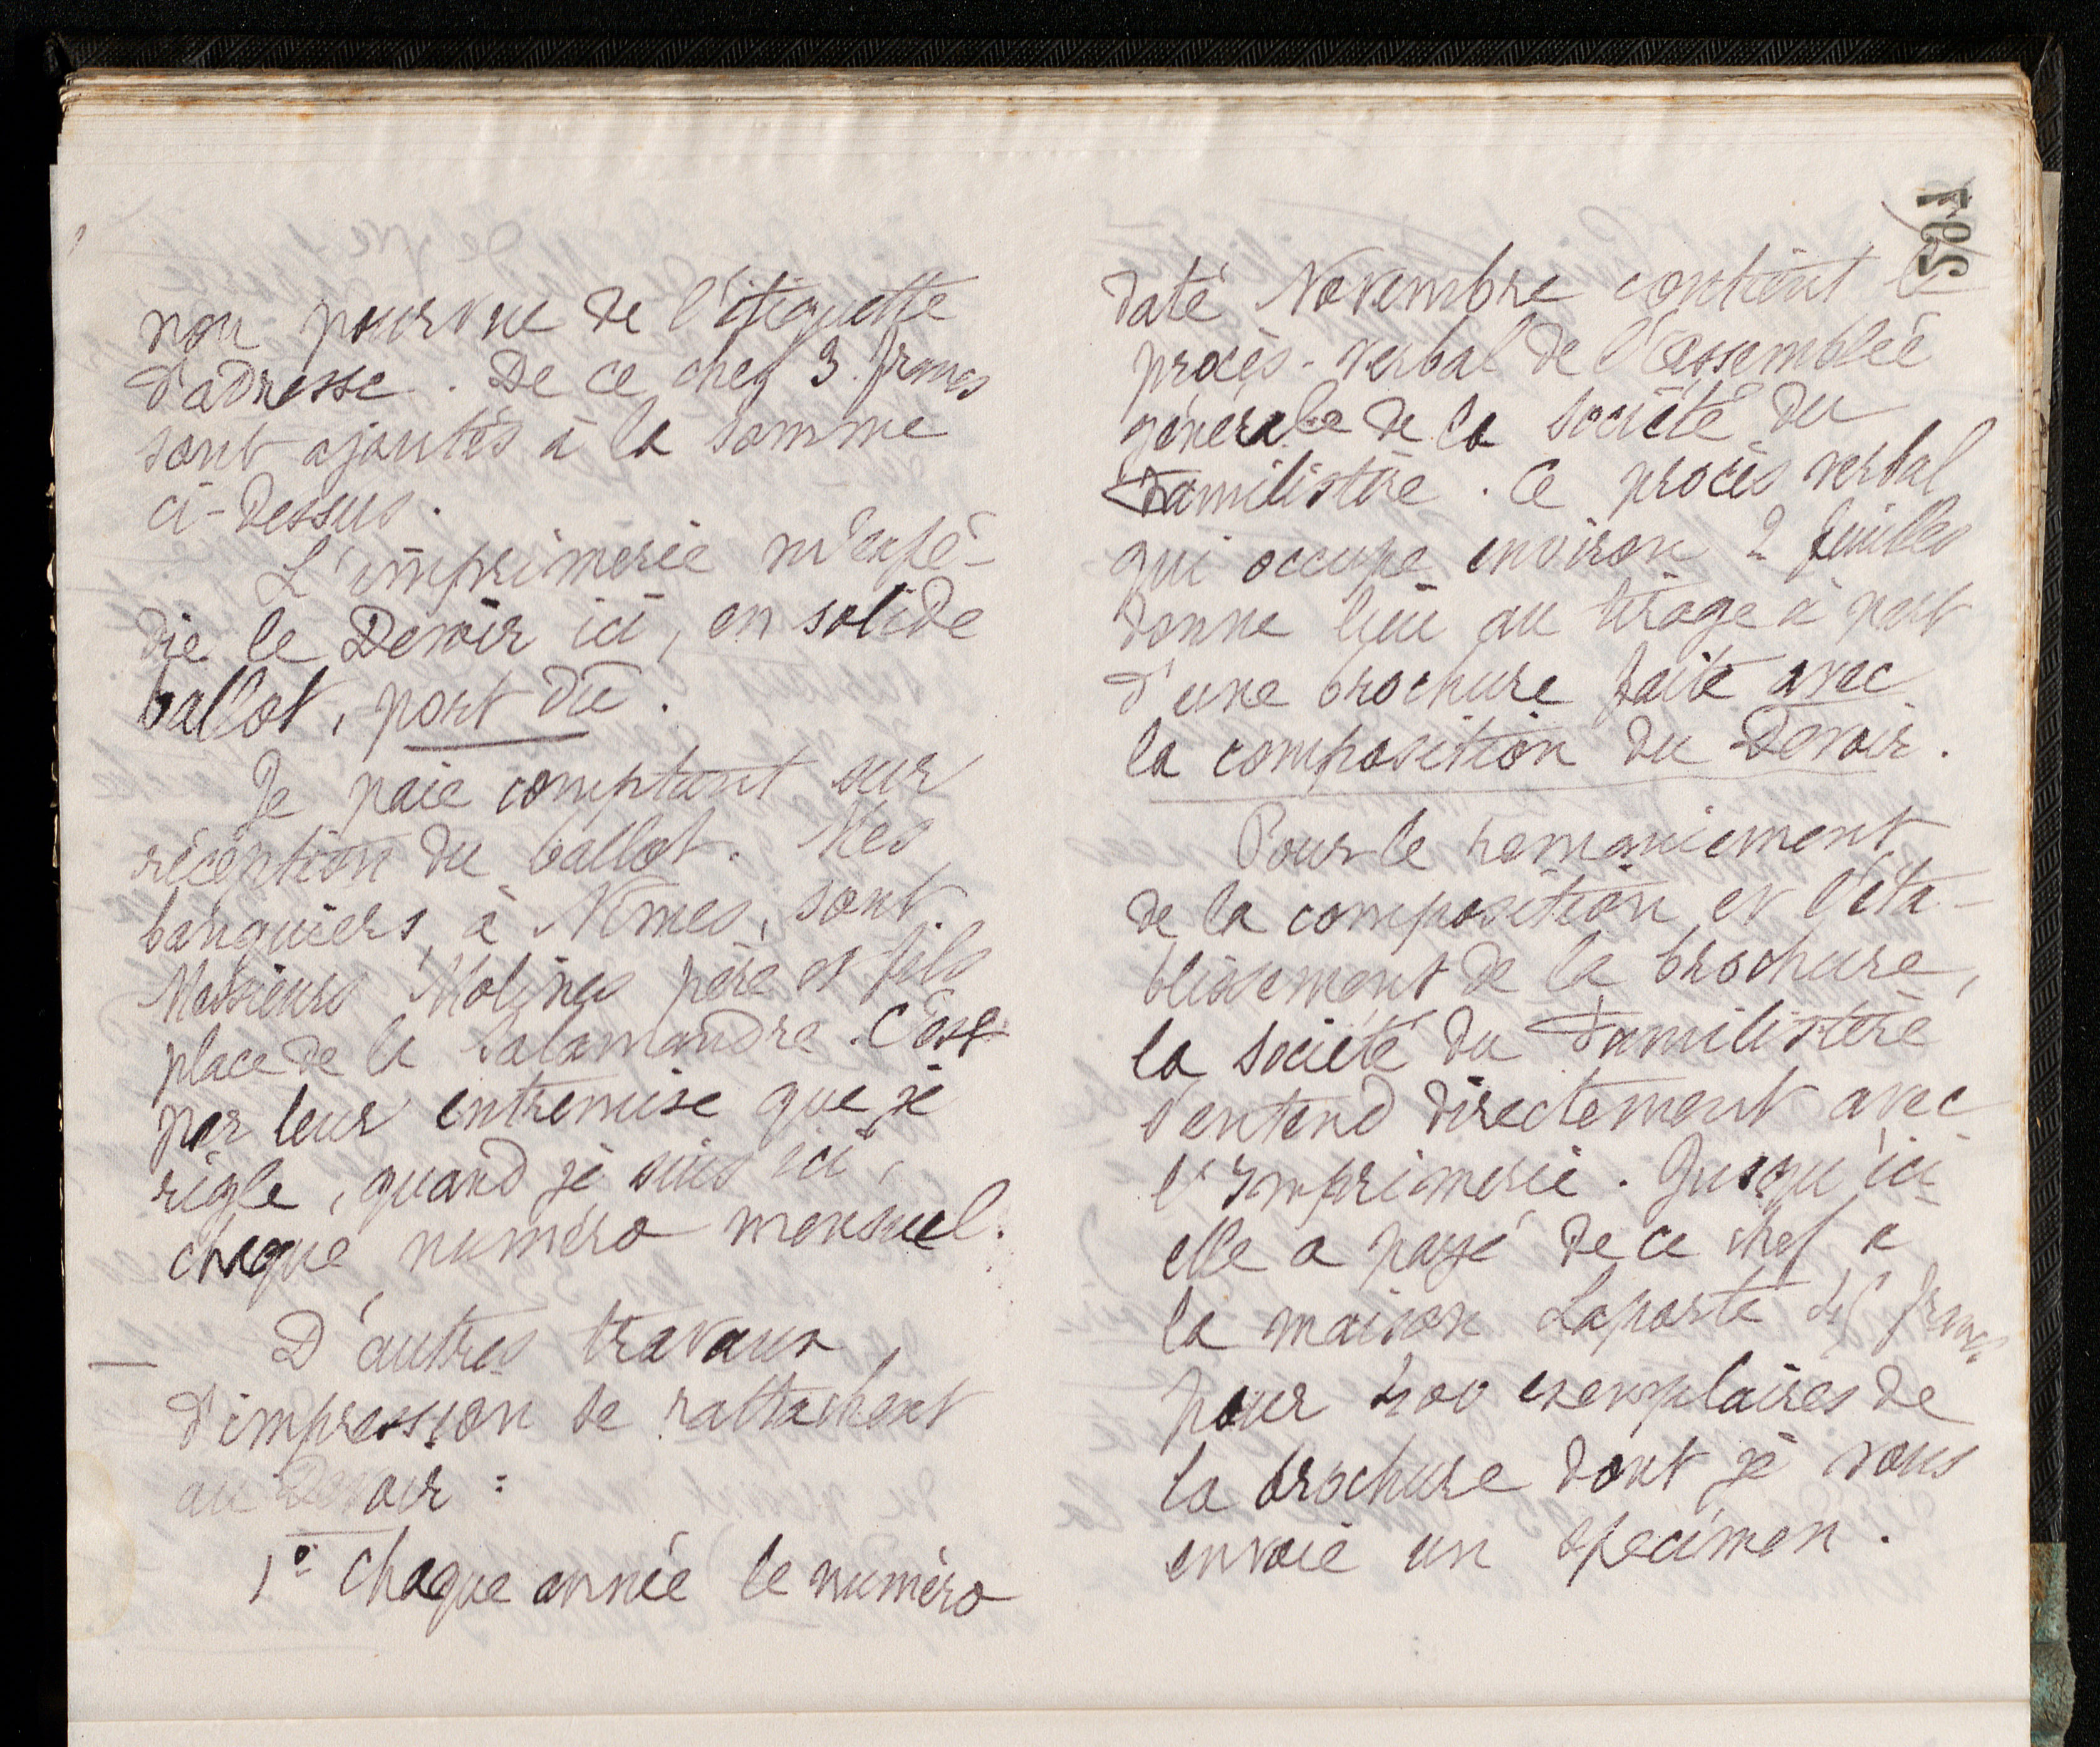 non pourvue de l'étiquette
d'adresse. De ce chef 3. francs
sont ajoutés à la somme
ci-dessus.
L'imprimerie m'expé-
die le Devoir ici, en solide
ballot, port dû.
Je paie comptant sur
réception du ballot. Mes
banquiers, à Nîmes, sont
Messieurs Molines père et fils
place de la Salamandre. C'est
par leur entremise que je
règle, quand je suis ici,
chaque numéro mensuel.
D'autres travaux
d'impression se rattachent
au Devoir :
1° Chaque année le numéro
501
daté Novembre contient le
procès-verbal de l'assemblée
générale de la société du
Familistère. Ce procès verbal
qui occupe environ 2 feuilles
donne lieu au tirage à part
d'une brochure faite avec
la composition du Devoir.
Pour le remaniement
de la composition et l'éta-
blissement de la brochure,
la société du Familistère
s'entend directement avec
l'Imprimerie. Jusqu'ici
elle a payé de ce chef à
la maison Laporte francs
pour 400 exemplaires de
la brochure dont je vous
envoie un spécimen.